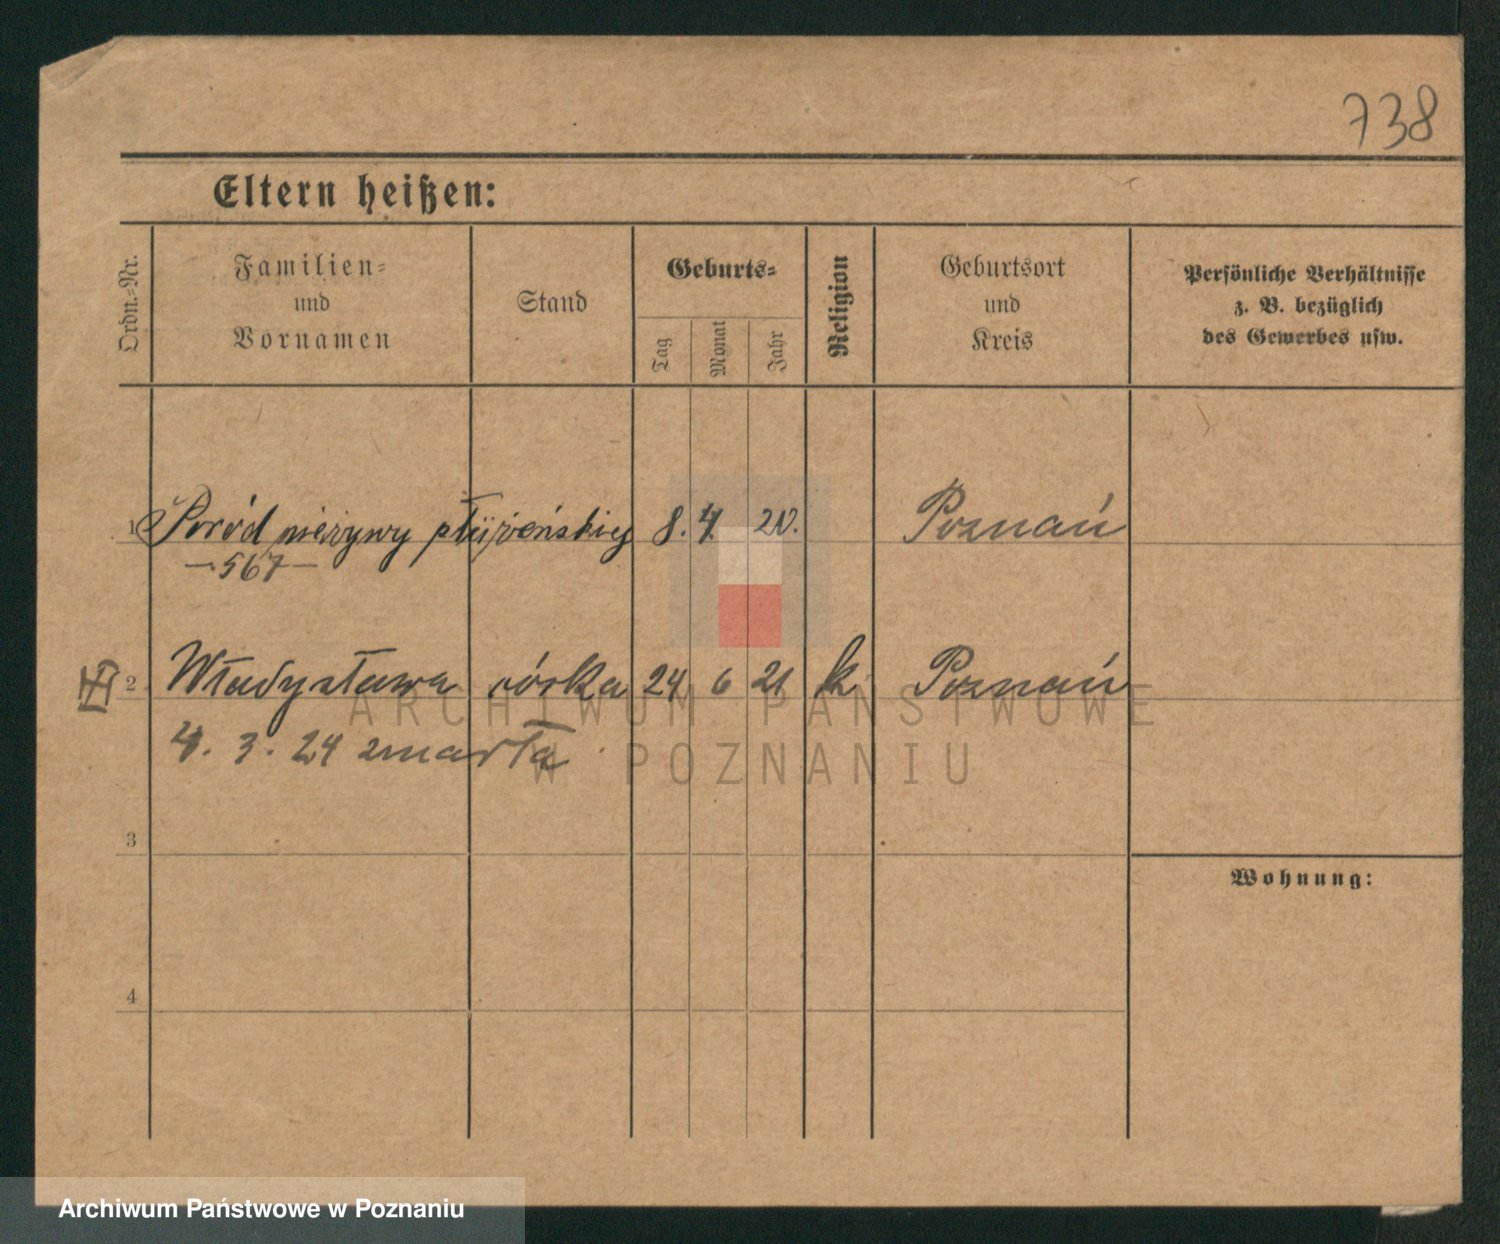 738
Eltern heißen:
Ordn.-Nr.
Familien-
und
Vornamen
Stand
Geburts-
Tag
Monat
Jahr
Religion
Geburtsort
und
Kreis
Persönliche Verhältnisse
z. B. bezüglich
des Gewerbes usw.
1 Poród nieżywy płci żeńskiej 8. 4. 20. Poznań
—567—
2 Władysława córka 24 6 21 k Poznań
4. 3. 24 zmarła
3
Wohnung:
4
ARCHIWUM PAŃSTWOWE
W POZNANIU
Archiwum Państwowe w Poznaniu